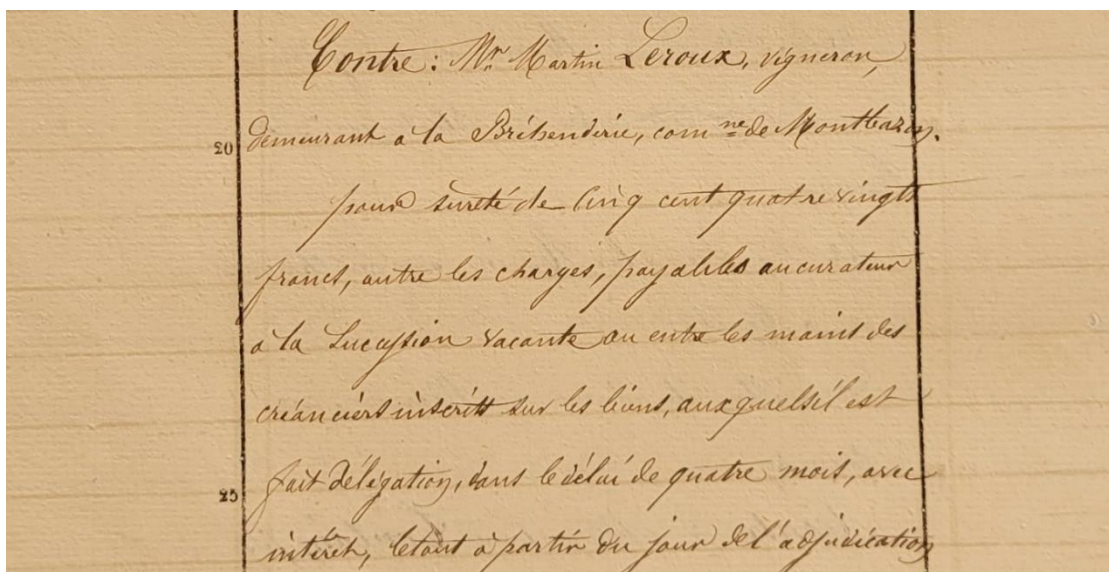 Contre: Mr Martin Leroux, vigneron,
20 demeurant à la Brétenderie, comne de Montbazon.
pour sureté de Cinq cent quatre vingts
francs, outre les charges, payables au curateur
à la Succession vacante ou entre les mains des
créanciers inscrits sur les biens, auxquels il est
25 fait délégation, dans le délai de quatre mois, avec
intérêt, letout à partir du jour de l'adjudication